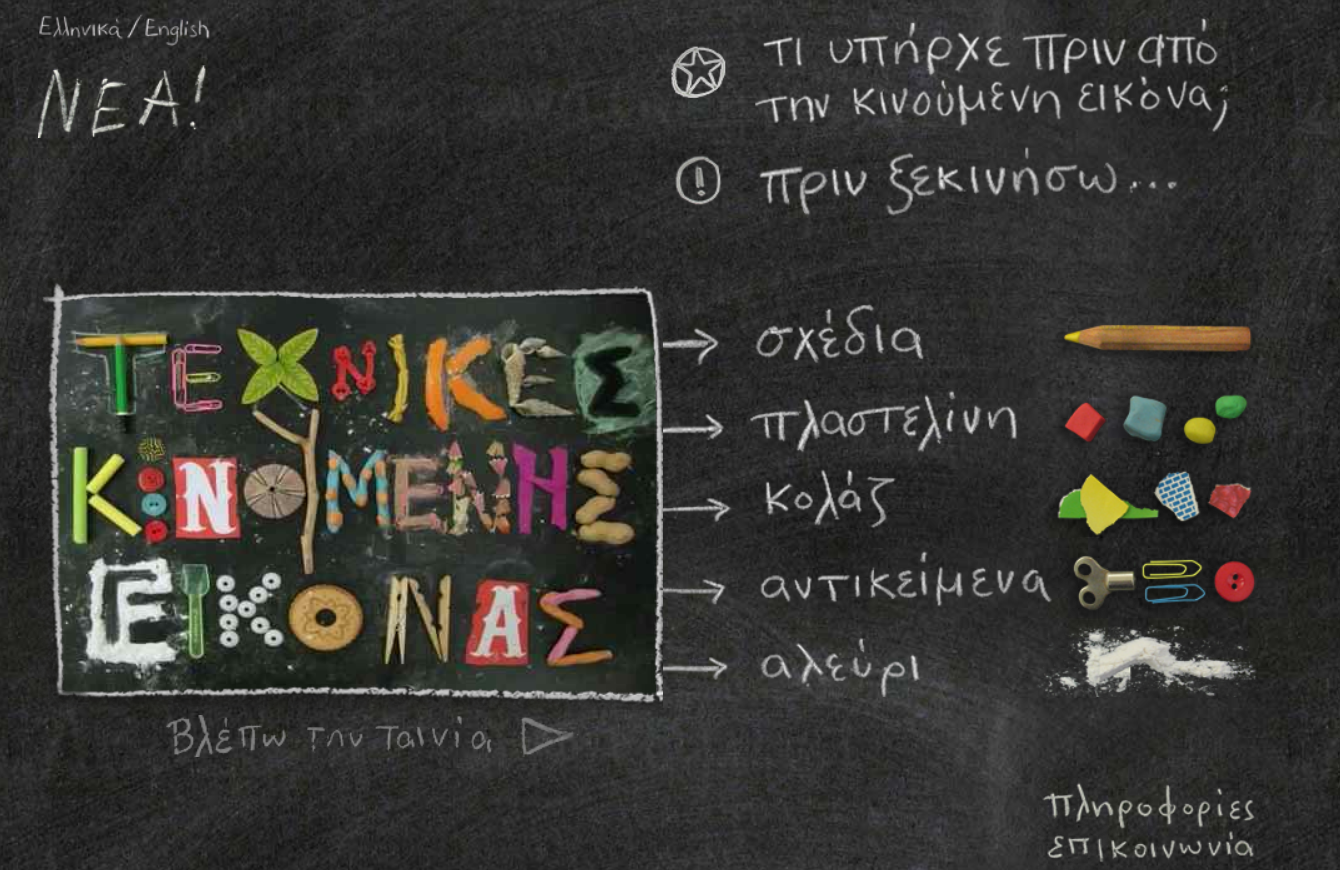 Ελληνικά / English
ΝΕΑ!
τι υπήρχε πριν από
την κινούμενη εικόνα;
πριν ξεκινήσω...
ΤΕΧΝΙΚΕΣ
ΚΙΝΟΥΜΕΝΗΣ
ΕΙΚΟΝΑΣ
σχέδια
πλαστελίνη
κολάζ
αντικείμενα
αλεύρι
Βλέπω την ταινία
πληροφορίες
επικοινωνία